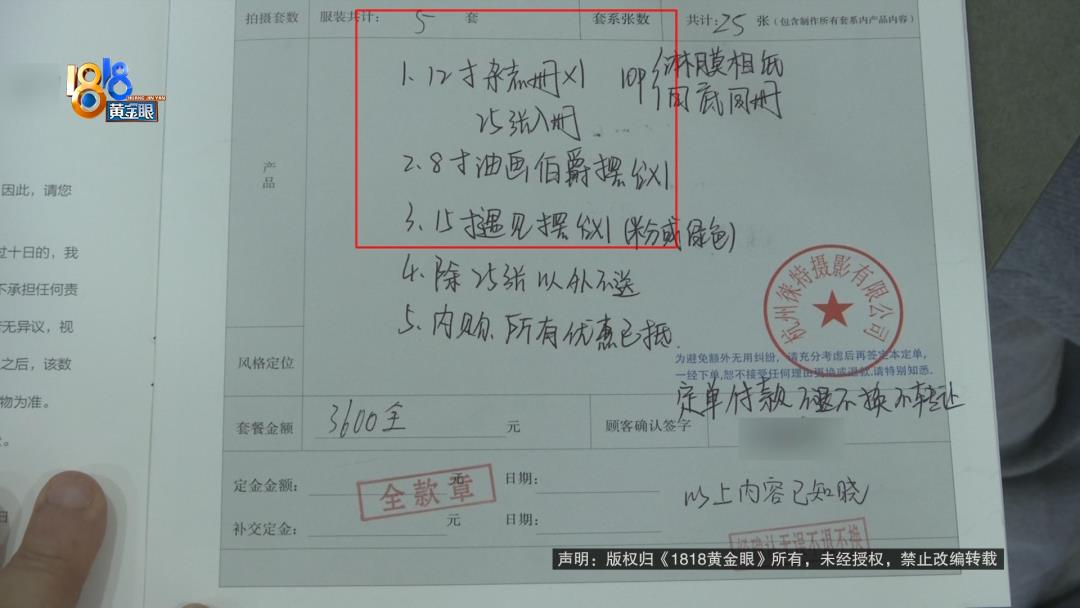 拍摄套数 服装共计： 5 套 套系张数 共计：25 张（包含制作所有套系内产品内容）
1. 12寸杂志册X1 10P 淋膜相纸
25张入册 同底同册
2. 8寸油画伯爵摆台X1
3. 15寸遇见摆台X1（粉或绿色）
4. 除25张以外不送
5. 内购所有优惠已抵
产品
风格定位
为避免额外无用纠纷，请充分考虑后再签定本定单，
一经下单，恕不接受任何理由更换或退款，请特别知悉。
定单付款不退不换不转让
套餐金额 3600全 元 顾客确认签字
定金金额： 元 日期：
全款章
以上内容已知晓
补交定金： 元 日期：
杭州徕特摄影有限公司
1818
HUANG JIN YAN
黄金眼
因此，请您
过十日的，我
不承担任何责
无异议，视
之后，该数
物为准。
声明：版权归《1818黄金眼》所有，未经授权，禁止改编转载